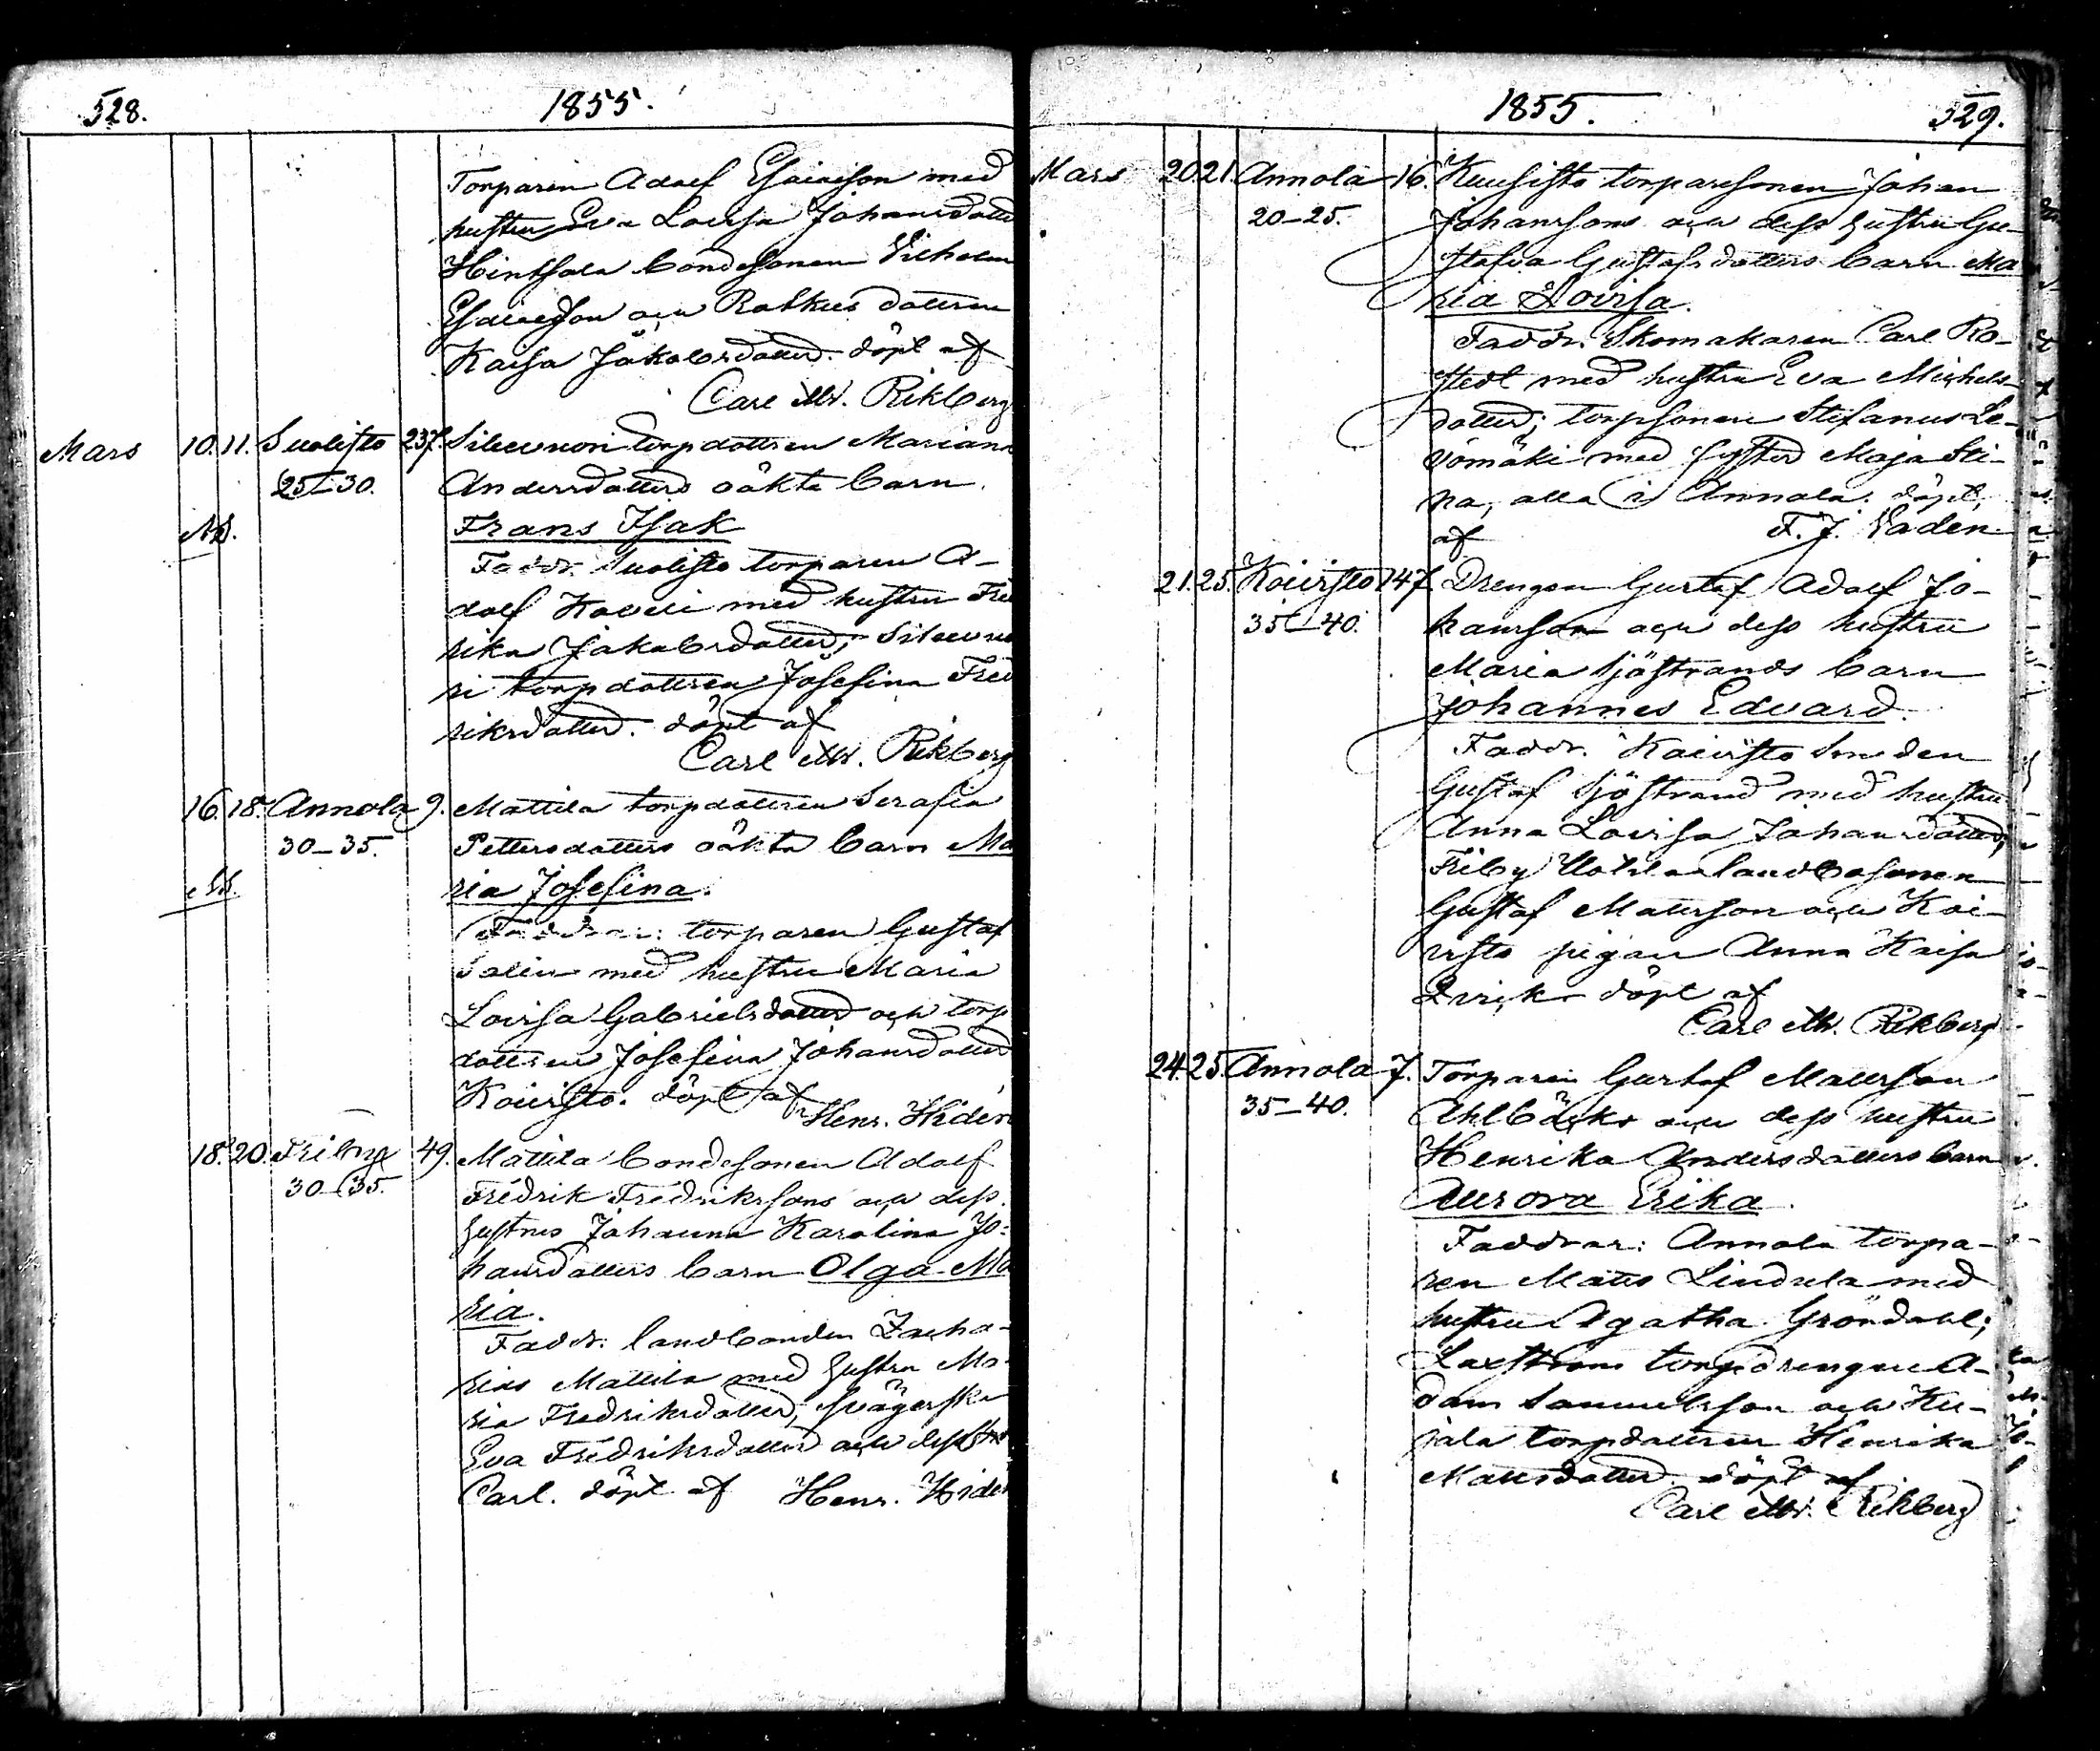 528.
1855.
Torparen Adolf Esaiæson med
hustru Eva Lovisa Johansdotter
Hintsala bondesonen Vilhelm
Esaiæson och dottren
Kaisa Jakobsdotter. döpt af
Carl M. Rikberg
Mars 10. 11. Suolisto 237. torpdottren Mariana
25–30. Andersdotters oäkta barn
NB. Frans Isak
Faddr. Suolisto torparen A-
dolf med hustru Fred
rika Jakobsdotter;
ri torpdottren Josefina Fred
riksdotter. döpt af
Carl M. Rikberg
16. 18. Annola 9. Mattila torpdottren Serafia
30–35. Pettersdotters oäkta barn Ma
NB. ria Josefina.
Faddrar: torparen Gustaf
Salin med hustru Maria
Lovisa Gabrielsdotter och torp
dottren Josefina Johansdotter
Koivisto. döpt af
Henr. Hidén
18. 20. Friby 49. Mattila bondesonen Adolf
30–35. Fredrik Fredrikssons och dess
hustrus Johanna Karolina Jo-
hansdotters barn Olga Ma
ria.
Faddr. landbonden Zacha-
rias Mattila med hustru Ma-
ria Fredriksdotter, svägerska
Eva Fredriksdotter och dess
Carl. döpt af Henr. Hidén
1855.
529.
Mars 20. 21. Annola 16. Kuusisto torparesonen Johan
20–25. Johanssons och dess hustru Gu-
stafva Gustafsdotters barn Ma
ria Lovisa.
Faddr. Skomakaren Carl Ro-
stedt med hustru Eva Michels-
dotter; torpsonen Stefanus Le-
vomäki med syster Maja Sti-
na, alla i Annola. döpt
af F. J. Vadén
21. 25. Koivisto 147. Drengen Gustaf Adolf Jo-
35–40. hanson och dess hustru
Maria Sjöstrands barn
Johannes Edvard.
Faddr. Koivisto smeden
Gustaf Sjöstrand med hustru
Anna Lovisa Johansdotter,
Friby landbosonen
Gustaf Matsson och Koi-
visto pigan Anna Kaisa
döpt af
Carl M. Rikberg
24. 25. Annola 7. Torparen Gustaf Matsson
35–40. Ahlbäcks och dess hustru
Henrika Andersdotters barn
Aurora Erika.
Faddrar: Annola torpa-
ren Matts Lindula med
hustru Agatha Gröndahl;
Laxström torpdrengen A-
dam Samuelsson och Ku-
jala torpdottren Henrika
Mattsdotter. döpt af
Carl M. Rikberg